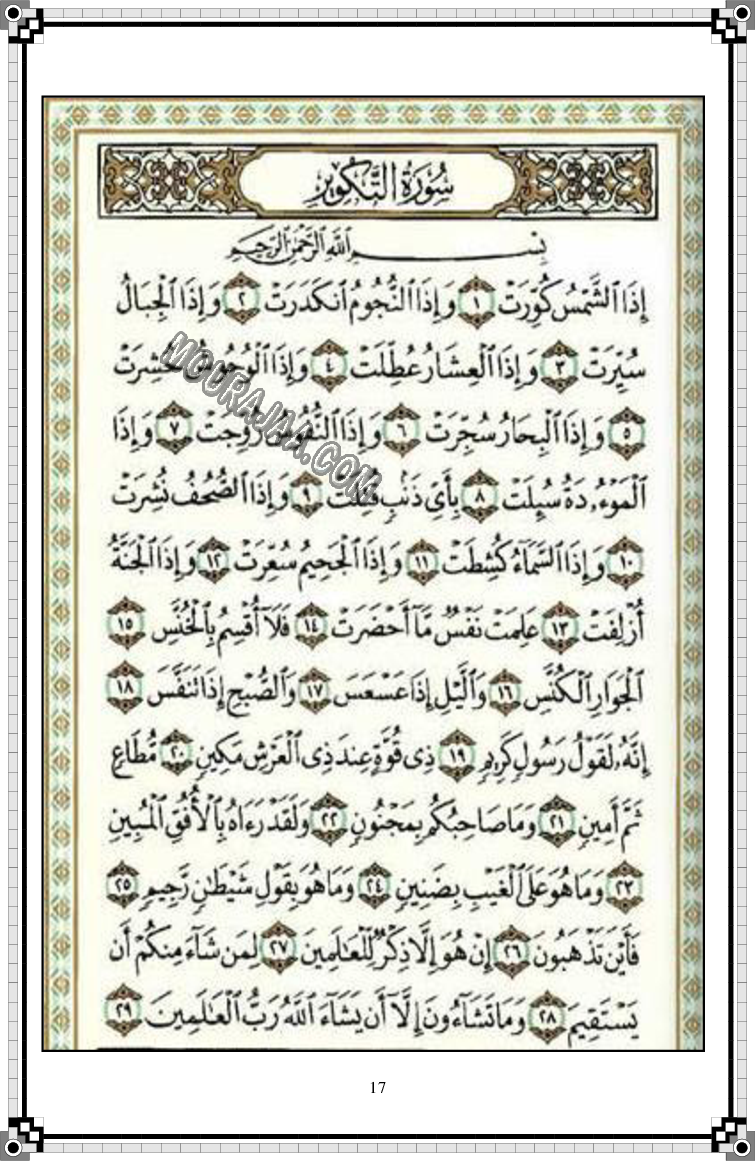 سُورَةُ التَّكْوِيرِ
بِسْمِ ٱللَّهِ ٱلرَّحْمَٰنِ ٱلرَّحِيمِ
إِذَا ٱلشَّمْسُ كُوِّرَتْ ١ وَإِذَا ٱلنُّجُومُ ٱنكَدَرَتْ ٢ وَإِذَا ٱلْجِبَالُ
سُيِّرَتْ ٣ وَإِذَا ٱلْعِشَارُ عُطِّلَتْ ٤ وَإِذَا ٱلْوُحُوشُ حُشِرَتْ
٥ وَإِذَا ٱلْبِحَارُ سُجِّرَتْ ٦ وَإِذَا ٱلنُّفُوسُ زُوِّجَتْ ٧ وَإِذَا
ٱلْمَوْءُۥدَةُ سُئِلَتْ ٨ بِأَىِّ ذَنۢبٍ قُتِلَتْ ٩ وَإِذَا ٱلصُّحُفُ نُشِرَتْ
١٠ وَإِذَا ٱلسَّمَآءُ كُشِطَتْ ١١ وَإِذَا ٱلْجَحِيمُ سُعِّرَتْ ١٢ وَإِذَا ٱلْجَنَّةُ
أُزْلِفَتْ ١٣ عَلِمَتْ نَفْسٌ مَّآ أَحْضَرَتْ ١٤ فَلَآ أُقْسِمُ بِٱلْخُنَّسِ ١٥
ٱلْجَوَارِ ٱلْكُنَّسِ ١٦ وَٱلَّيْلِ إِذَا عَسْعَسَ ١٧ وَٱلصُّبْحِ إِذَا تَنَفَّسَ ١٨
إِنَّهُۥ لَقَوْلُ رَسُولٍ كَرِيمٍ ١٩ ذِى قُوَّةٍ عِندَ ذِى ٱلْعَرْشِ مَكِينٍ ٢٠ مُّطَاعٍ
ثَمَّ أَمِينٍ ٢١ وَمَا صَاحِبُكُم بِمَجْنُونٍ ٢٢ وَلَقَدْ رَءَاهُ بِٱلْأُفُقِ ٱلْمُبِينِ
٢٣ وَمَا هُوَ عَلَى ٱلْغَيْبِ بِضَنِينٍ ٢٤ وَمَا هُوَ بِقَوْلِ شَيْطَٰنٍ رَّجِيمٍ ٢٥
فَأَيْنَ تَذْهَبُونَ ٢٦ إِنْ هُوَ إِلَّا ذِكْرٌ لِّلْعَٰلَمِينَ ٢٧ لِمَن شَآءَ مِنكُمْ أَن
يَسْتَقِيمَ ٢٨ وَمَا تَشَآءُونَ إِلَّآ أَن يَشَآءَ ٱللَّهُ رَبُّ ٱلْعَٰلَمِينَ ٢٩
MOURAJAA.COM
17